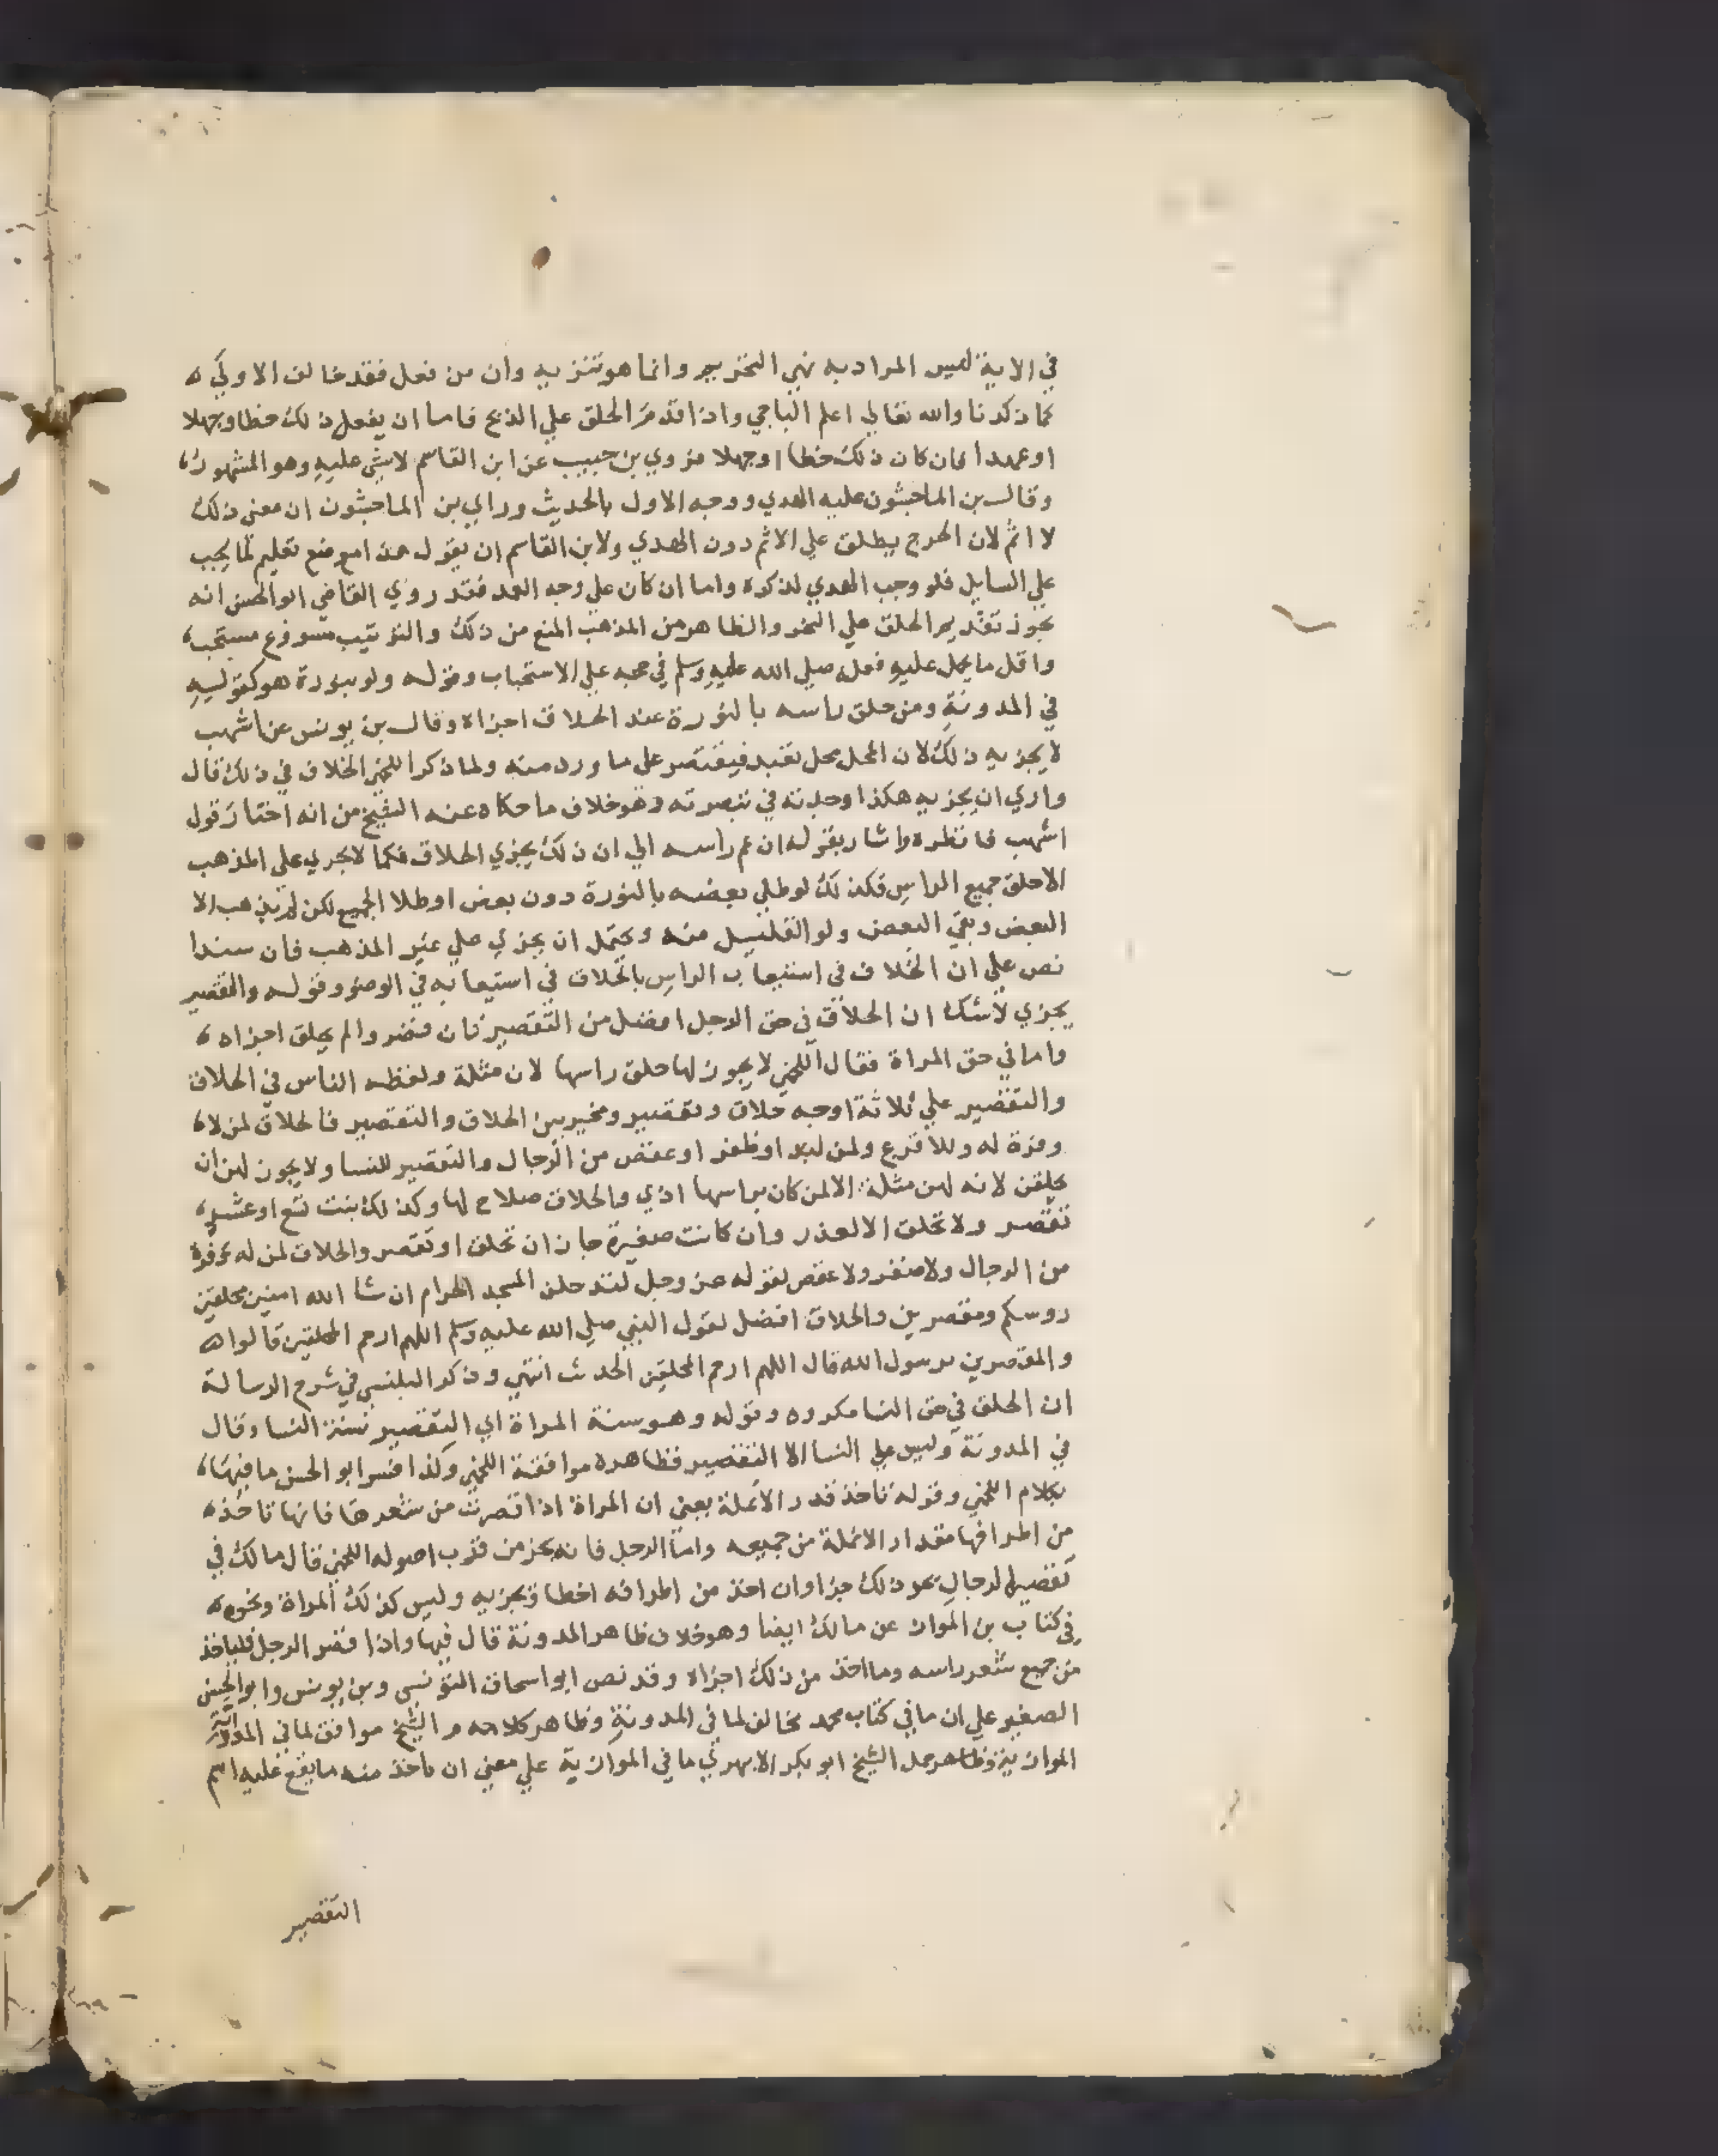 في الاية ليس المراد به نهي التحريم وانما هو تنزيه وان من فعل فقد خالف الاولي ه
كما ذكرنا والله تعالي اعلم الباجي واذا قدم الحلق علي الذبح فاما ان يفعل ذلك خطا وجهلا
او عمدا فان كان ذلك خطا اوجهلا فروي بن حبيب عن ابن القاسم لا شي عليه وهو المشهور،
وقال بن الماجشون عليه الهدي ووجه الاول بالحديث وراي بن الماجشون ان معني ذلك
لا اثم لان الحرج يطلق علي الاثم دون الهدي ولابن القاسم ان يقول هذا موضع تعليم لما يجب
علي السايل فلو وجب الهدي لذكره واما ان كان علي وجه العمد فقد روي القاضي ابوالحسن انه
يجوز تقديم الحلق علي النحر والظاهر من المذهب المنع من ذلك والترتيب مشروع مستحب،
واقل ما يحمل عليه فعله صلي الله عليه وسلم في حجه علي الاستحباب وقوله ولو بنورة هو كقوله
في المدونة ومن حلق راسه بالنورة عند الحلاق اجزاه وقال بن يونس عن اشهب
لا يجزيه ذلك لان المحل محل تعبد فيقتصر علي ما ورد منه ولما ذكر اللخمي الخلاف في ذلك قال
واري ان يجزيه هكذا وجدته في تبصرته وهو خلاف ما حكاه عنه الشيخ من انه اختار قول
اشهب فانظره واشار بقوله ان عم راسه الي ان ذلك يجزي الحلاق فكما لا يجزي علي المذهب
الاحلق جميع الراس فكذلك لو طلي بعضه بالنورة دون بعض او طلا الجميع لكن لم يذهب الا
البعض وبقي البعض ولو القليل منه ويحتمل ان يجزي علي غير المذهب فان سندا
نص علي ان الخلاف في استيعاب الراس بالحلاق في استيعابه في الوضو وقوله والتقصير
يجزي لاشك ان الحلاق في حق الرجل افضل من التقصير فان قصر والم يحلق اجزاه ،
واما في حق المراة فقال اللخمي لا يجوز لها حلق راسها لان مثلة ولفظه الناس في الحلاق
والتقصير علي ثلاثة اوجه حلاق وتقصير ومخير بين الحلاق والتقصير فالحلاق لمن لا،
وفرة له وللاقرع ولمن لبد او ظفر او عقص من الرجال والتقصير للنسا ولا يجوز لهن ان
يحلقن لانه لهن مثلة الا لمن كان براسها اذي والحلاق صلاح لها وكذلك بنت تسع او عشر،
تقصر ولا تحلق الا لعذر وان كانت صغيرة جاز ان تحلق او تقصر والحلاق لمن له وفرة
من الرجال ولا ضفر ولا عقص لقوله عز وجل لتدخلن المسجد الحرام ان شا الله امنين محلقين
روسكم ومقصرين والحلاق افضل لقول النبي صلي الله عليه وسلم اللهم ارحم المحلقين قالوا ه
والمقصرين يرسول الله قال اللهم ارحم المحلقين الحديث انتهي وذكر البلنسي في شرح الرسالة
ان الحلق في حق النسا مكروه وقوله وهو سنة المراة اي التقصير سنة النسا وقال
في المدونة وليس علي النسا الا التقصير فظاهره موافقة اللخمي ولذا فسر ابو الحسن ما فيها،
بكلام اللخمي وقوله تاخذ قدر الانملة يعني ان المراة اذا قصرت من شعرها فانها تاخذه
من اطرافها مقدار الانملة من جميعه واما الرجل فانه يجز من قرب اصوله اللخمي قال مالك في
تقصير الرجال يجز ذلك جزا وان اخذ من اطرافه اخطا ويجزيه وليس كذلك المراة ونحوه ه
في كتاب بن المواز عن مالك ايضا وهو خلاف ظاهر المدونة قال فيها واذا قصر الرجل فلياخذ
من جميع شعر راسه وما اخذ من ذلك اجزاه وقد نص ابو اسحاق التونسي وبن يونس وابو الحسن
الصغير علي ان ما في كتاب محمد مخالف لما في المدونة وظاهر كلامه م الشيخ موافق لما في المدونة
الموازية وظاهر حمل الشيخ ابو بكر الابهري ما في الموازية علي معني ان ياخذ منه ما يقع عليه اسم
التقصير